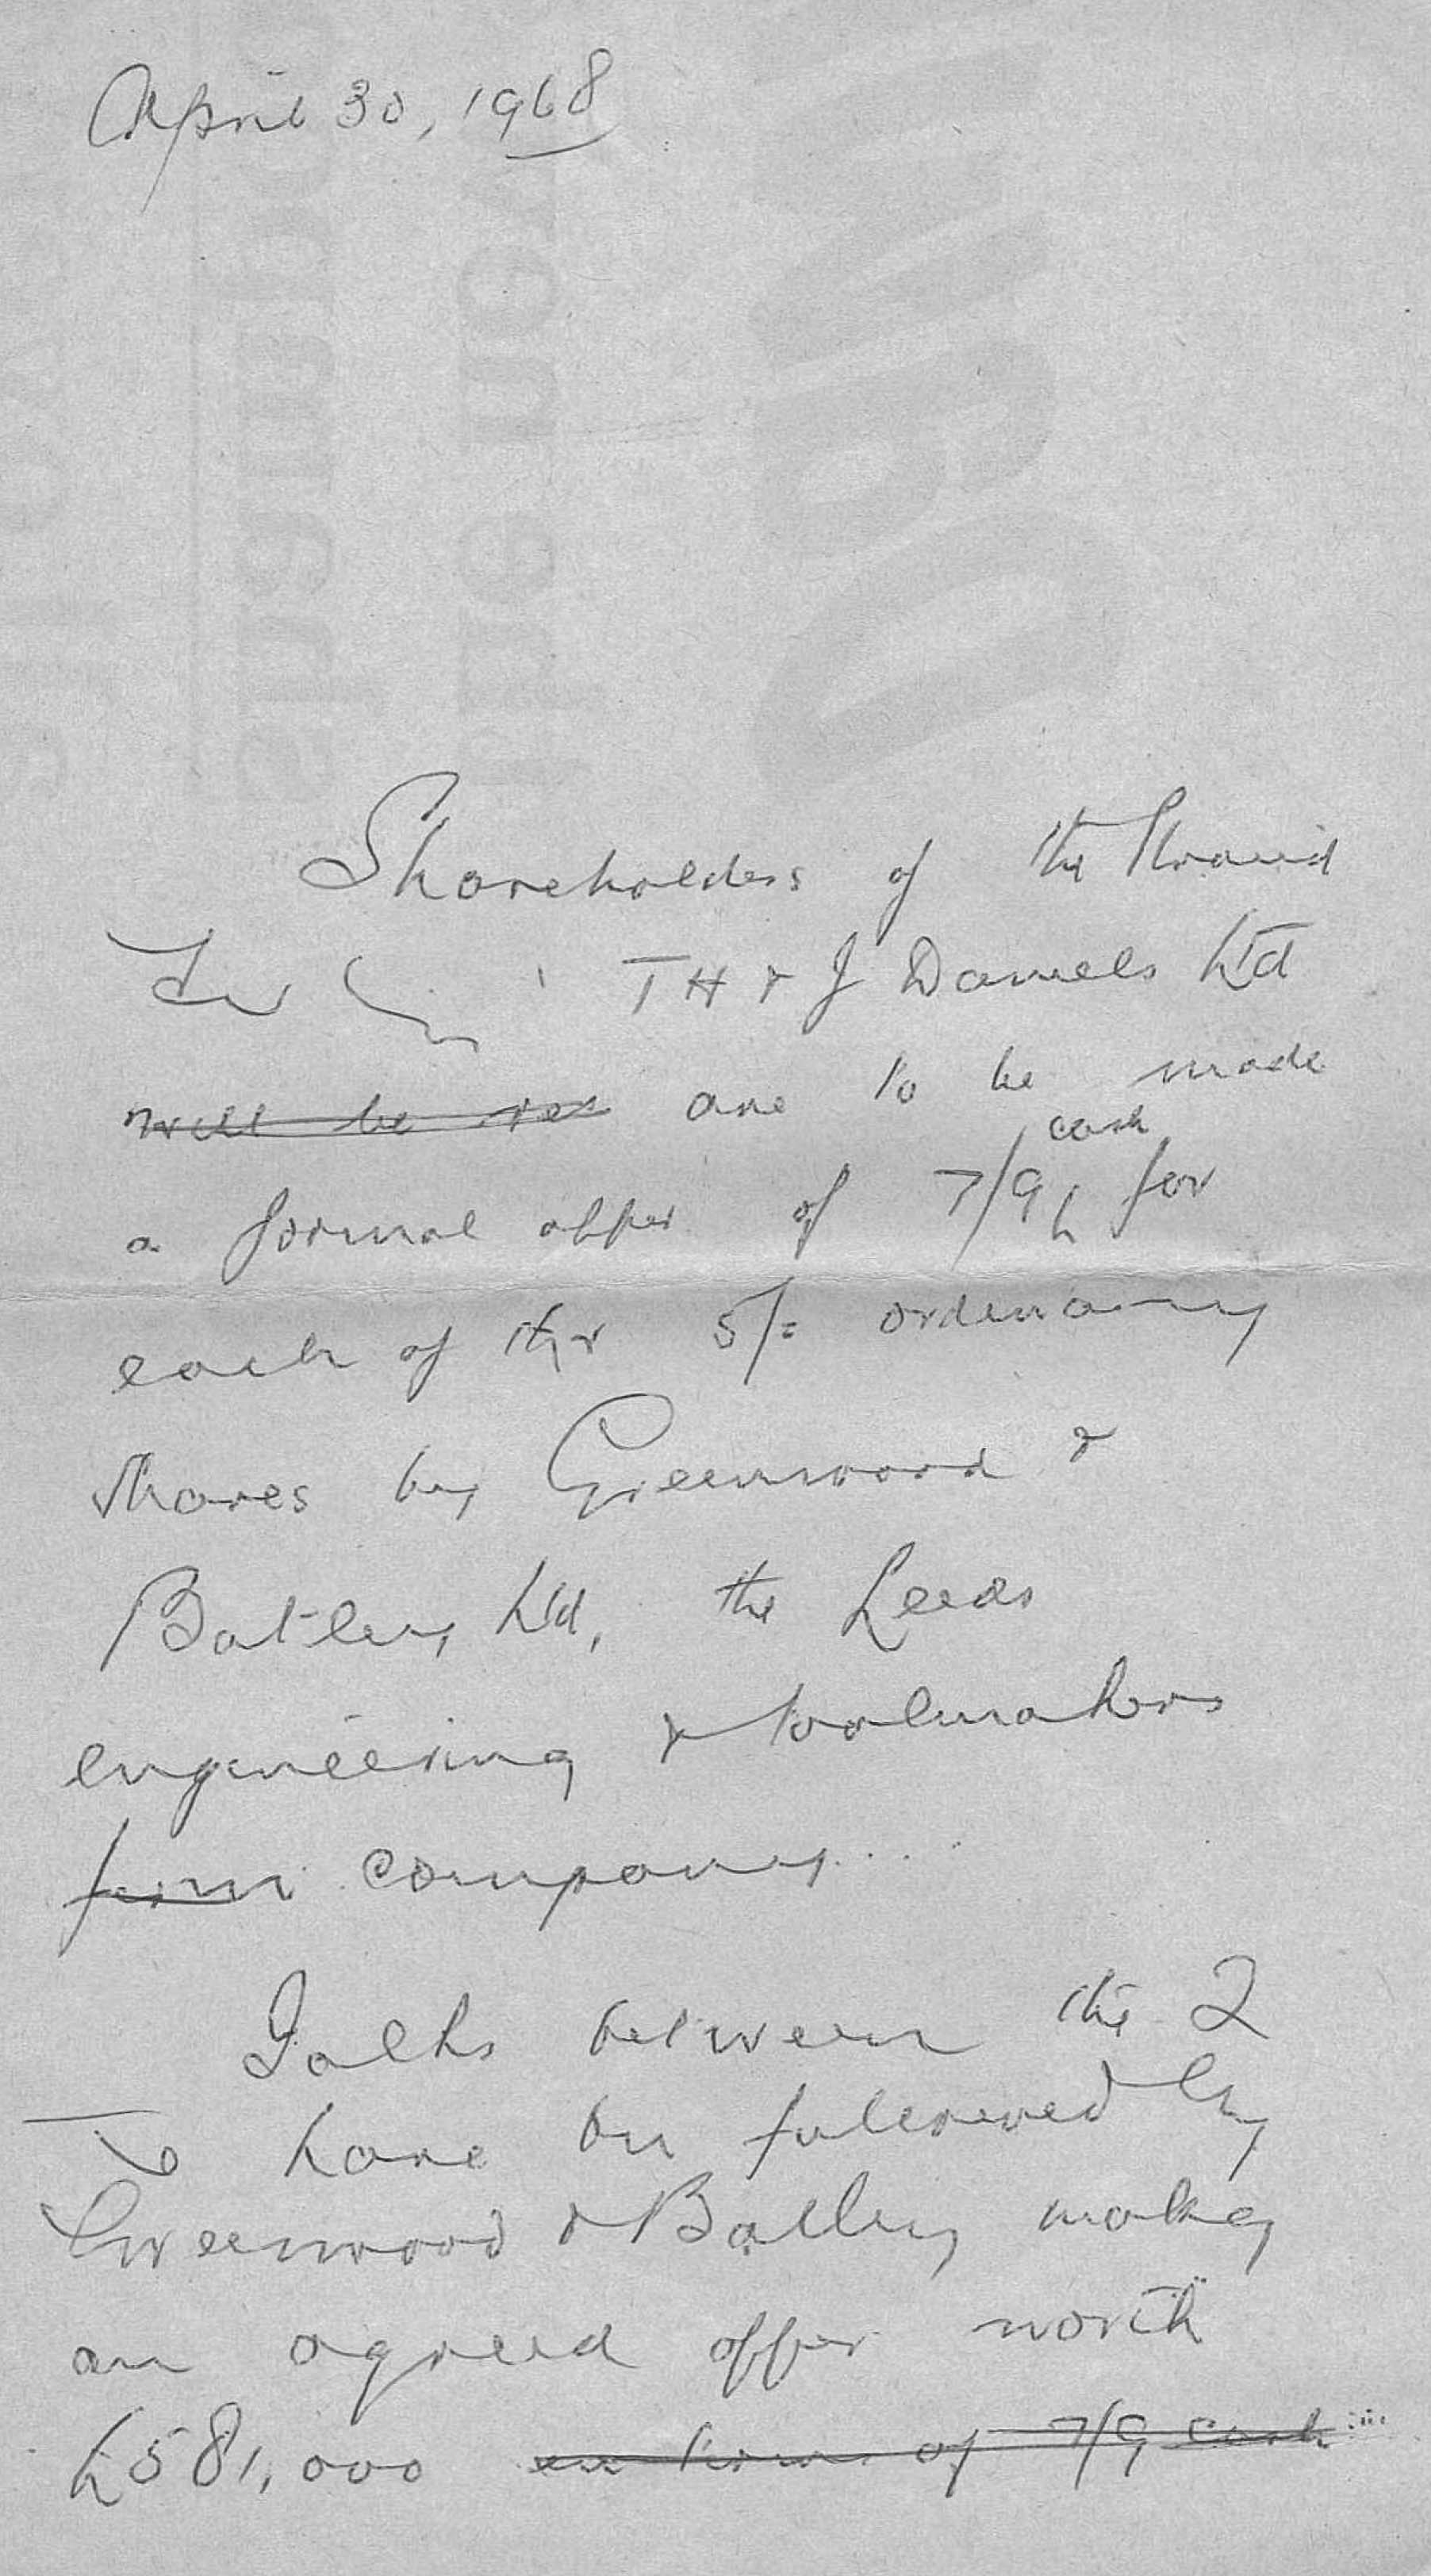 April 30, 1968
Shareholders of the Stroud
TH & J Daniels Ltd
will be are to be made
cash
a formal offer of 7/9 for
each of thr 5/= ordinary
shares by Greenwood &
Batley Ltd, the Leeds
engineering & toolmakers
firm company...
Talks between the 2
have bn followed by
Greenwood & Batley makg
an agreed offer worth
£581,000 in terms of 7/9 cash